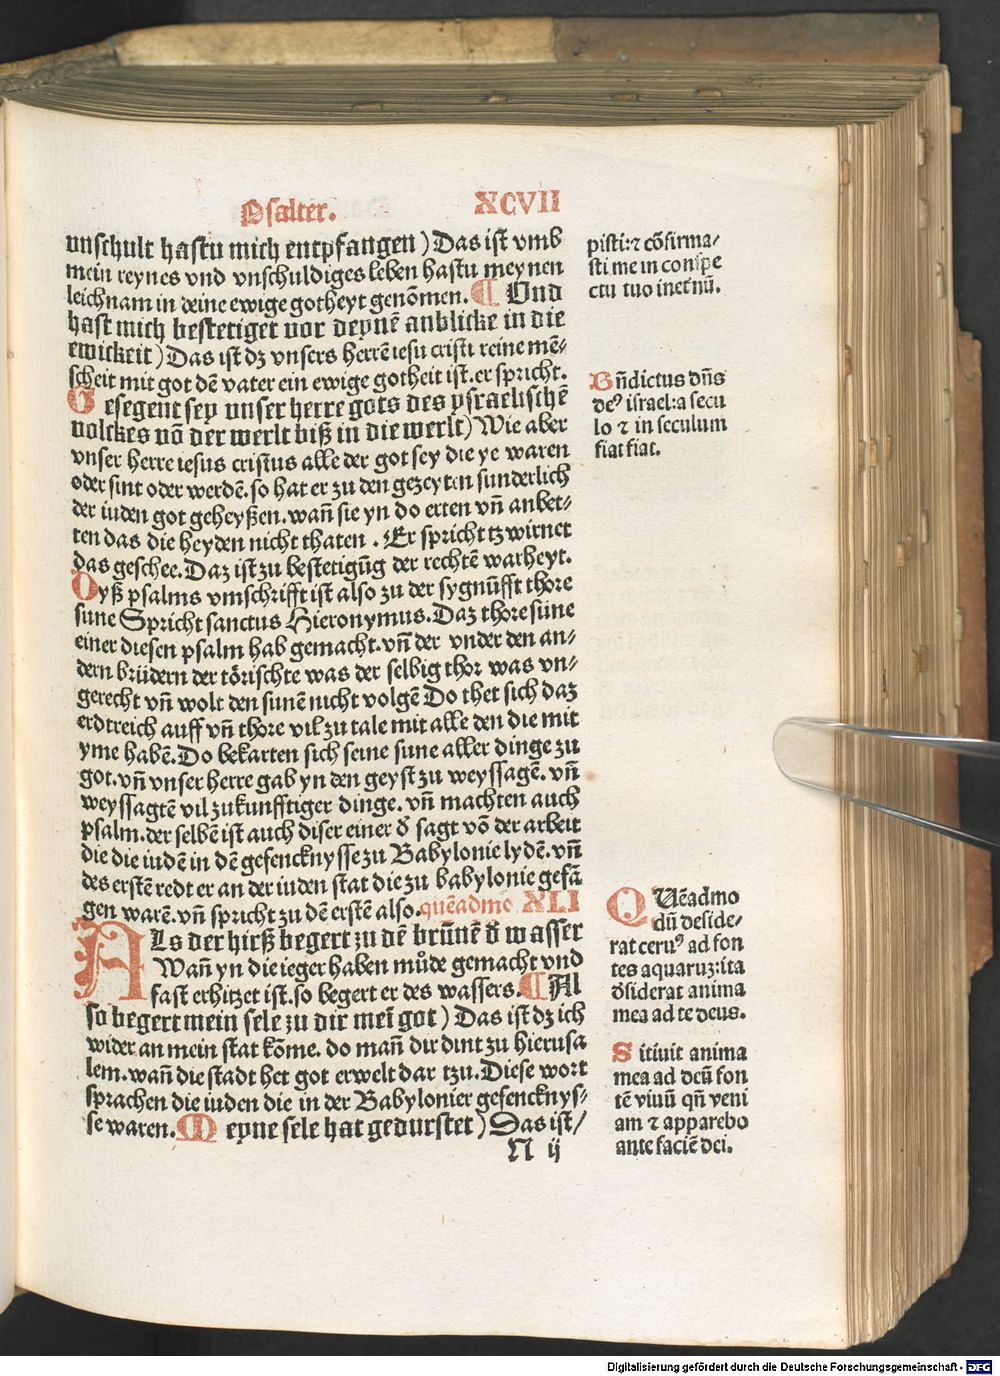 Psalter. XCVII
vnschult hastu mich entpfangen) Das ist vmb
mein reynes vnd vnschuldiges leben hastu meynen
leichnam in deine ewige gotheyt genōmen. ¶ Vnd
hast mich bestetiget vor deynē anblicke in die
ewickeit) Das ist dz vnsers herrē iesu cristi reine mē⸗
scheit mit got dē vater ein ewige gotheit ist. er spricht.
Gesegent sey vnser herre gots des ysraelischē
volckes vō der werlt biß in die werlt) Wie aber
vnser herre iesus cristus alle der got sey die ye waren
oder sint oder werdē. so hat er zu den gezeyten sunderlich
der iuden got geheyßen. wañ sie yn do erten vñ anbet⸗
ten das die heyden nicht thaten . Er spricht tzwirnet
das geschee. Daz ist zu bestetigūg der rechtē warheyt.
Dyß psalms vmschrifft ist also zu der sygnūfft thore
sune Spricht sanctus Hieronymus. Daz thore sune
einer diesen psalm hab gemacht. vñ der vnder den an⸗
dern brüdern der törischte was der selbig thor was vn⸗
gerecht vñ wolt den sunē nicht volgē Do thet sich daz
erdtreich auff vñ thore vil zu tale mit alle den die mit
yme habē. Do bekarten sich seine sune aller dinge zu
got. vñ vnser herre gab yn den geyst zu weyssagē. vñ
weyssagtē vil zukunfftiger dinge. vñ machten auch
psalm. der selbē ist auch diser einer ð sagt vō der arbeit
die die iudē in dē gefencknysse zu Babylonie lydē. vñ
des erstē redt er an der iuden stat die zu babylonie gefā
gen warē. vñ spricht zu dē erstē also. quēadmo XLI
Als der hirß begert zu dē brūnē ð wasser
Wañ yn die ieger haben můde gemacht vnd
fast erhitzet ist. so begert er des wassers. ¶ Al
so begert mein sele zu dir mei got) Das ist dz ich
wider an mein stat kōme. do mañ dir dint zu hierusa
lem. wañ die stadt het got erwelt dar tzu. Diese wort
sprachen die iuden die in der Babylonier gefencknys⸗
se waren. Meyne sele hat gedurstet) Das ist/
N ij
pisti: ⁊ cōfirma/
sti me in conspe
ctu tuo in etnū.
Bñdictus dñs
deꝰ israel: a secu
lo ⁊ in seculum
fiat fiat.
Quēadmo
dū deside⸗
rat ceruꝰ ad fon
tes aquaruz: ita
ðsiderat anima
mea ad te deus.
Sitiuit anima
mea ad deū fon
tē viuū qñ veni
am ⁊ apparebo
ante faciē dei.
Digitalisierung gefördert durch die Deutsche Forschungsgemeinschaft - DFG